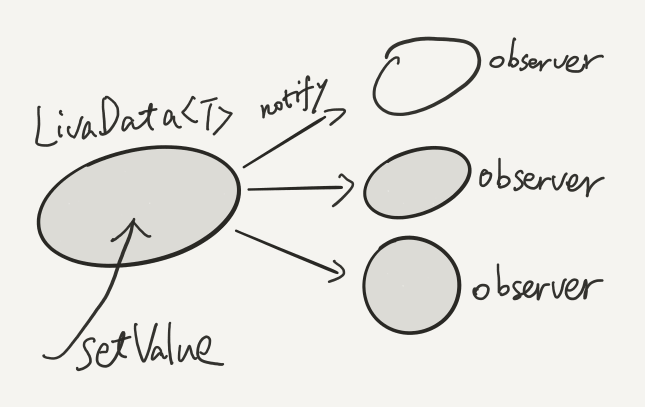 LivaData<T>
notify
observer
observer
observer
setValue